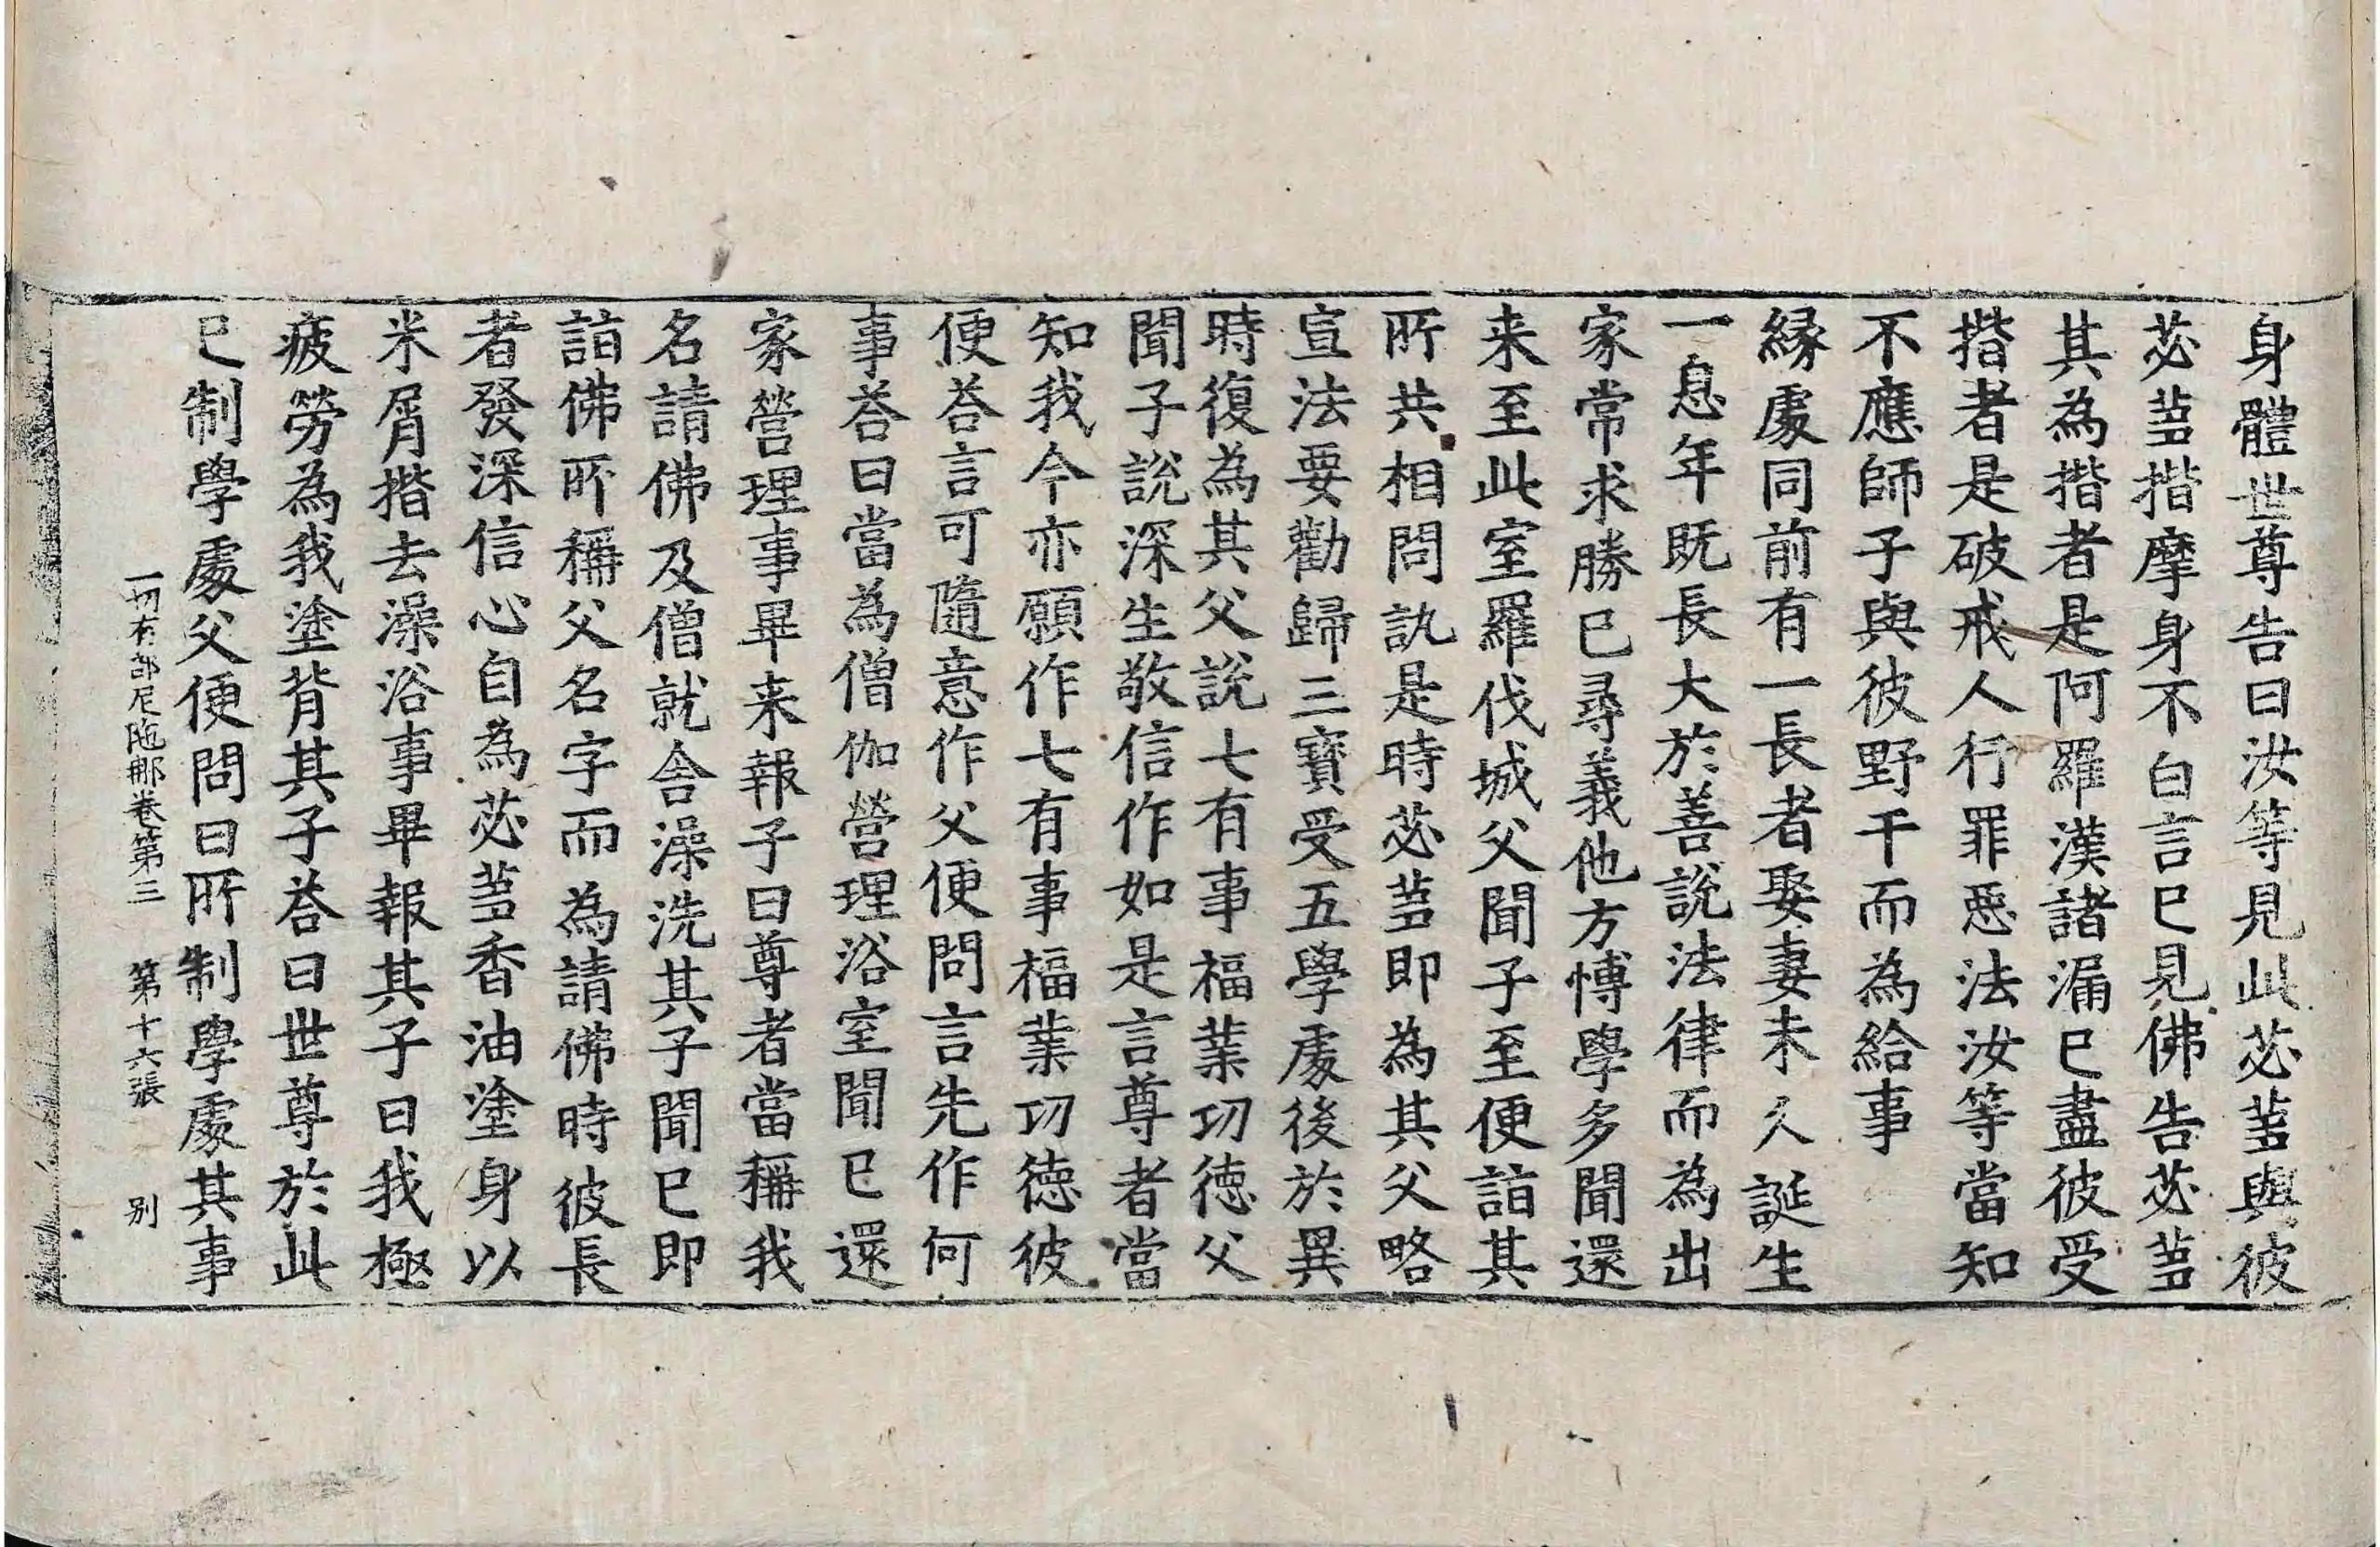 身體世尊告曰汝等見此苾芻與彼
苾芻揩摩身不白言已見佛告苾芻
其為揩者是阿羅漢諸漏已盡彼受
揩者是破戒人行罪惡法汝等當知
不應師子與彼野干而為給事
緣處同前有一長者娶妻未久誕生
一息年既長大於善說法律而為出
家常求勝已尋義他方博學多聞還
来至此室羅伐城父聞子至便詣其
所共相問訊是時苾芻即為其父略
宣法要勸歸三寶受五學處後於異
時復為其父說七有事福業功德父
聞子說深生敬信作如是言尊者當
知我今亦願作七有事福業功德彼
便荅言可隨意作父便問言先作何
事荅曰當為僧伽營理浴室聞已還
家營理事畢来報子曰尊者當稱我
名請佛及僧就舍澡洗其子聞已即
詣佛所稱父名字而為請佛時彼長
者發深信心自為苾芻香油塗身以
米屑揩去澡浴事畢報其子曰我極
疲勞為我塗背其子荅曰世尊於此
已制學處父便問曰所制學處其事
一切有部尼陁那卷第三　第十六張　别